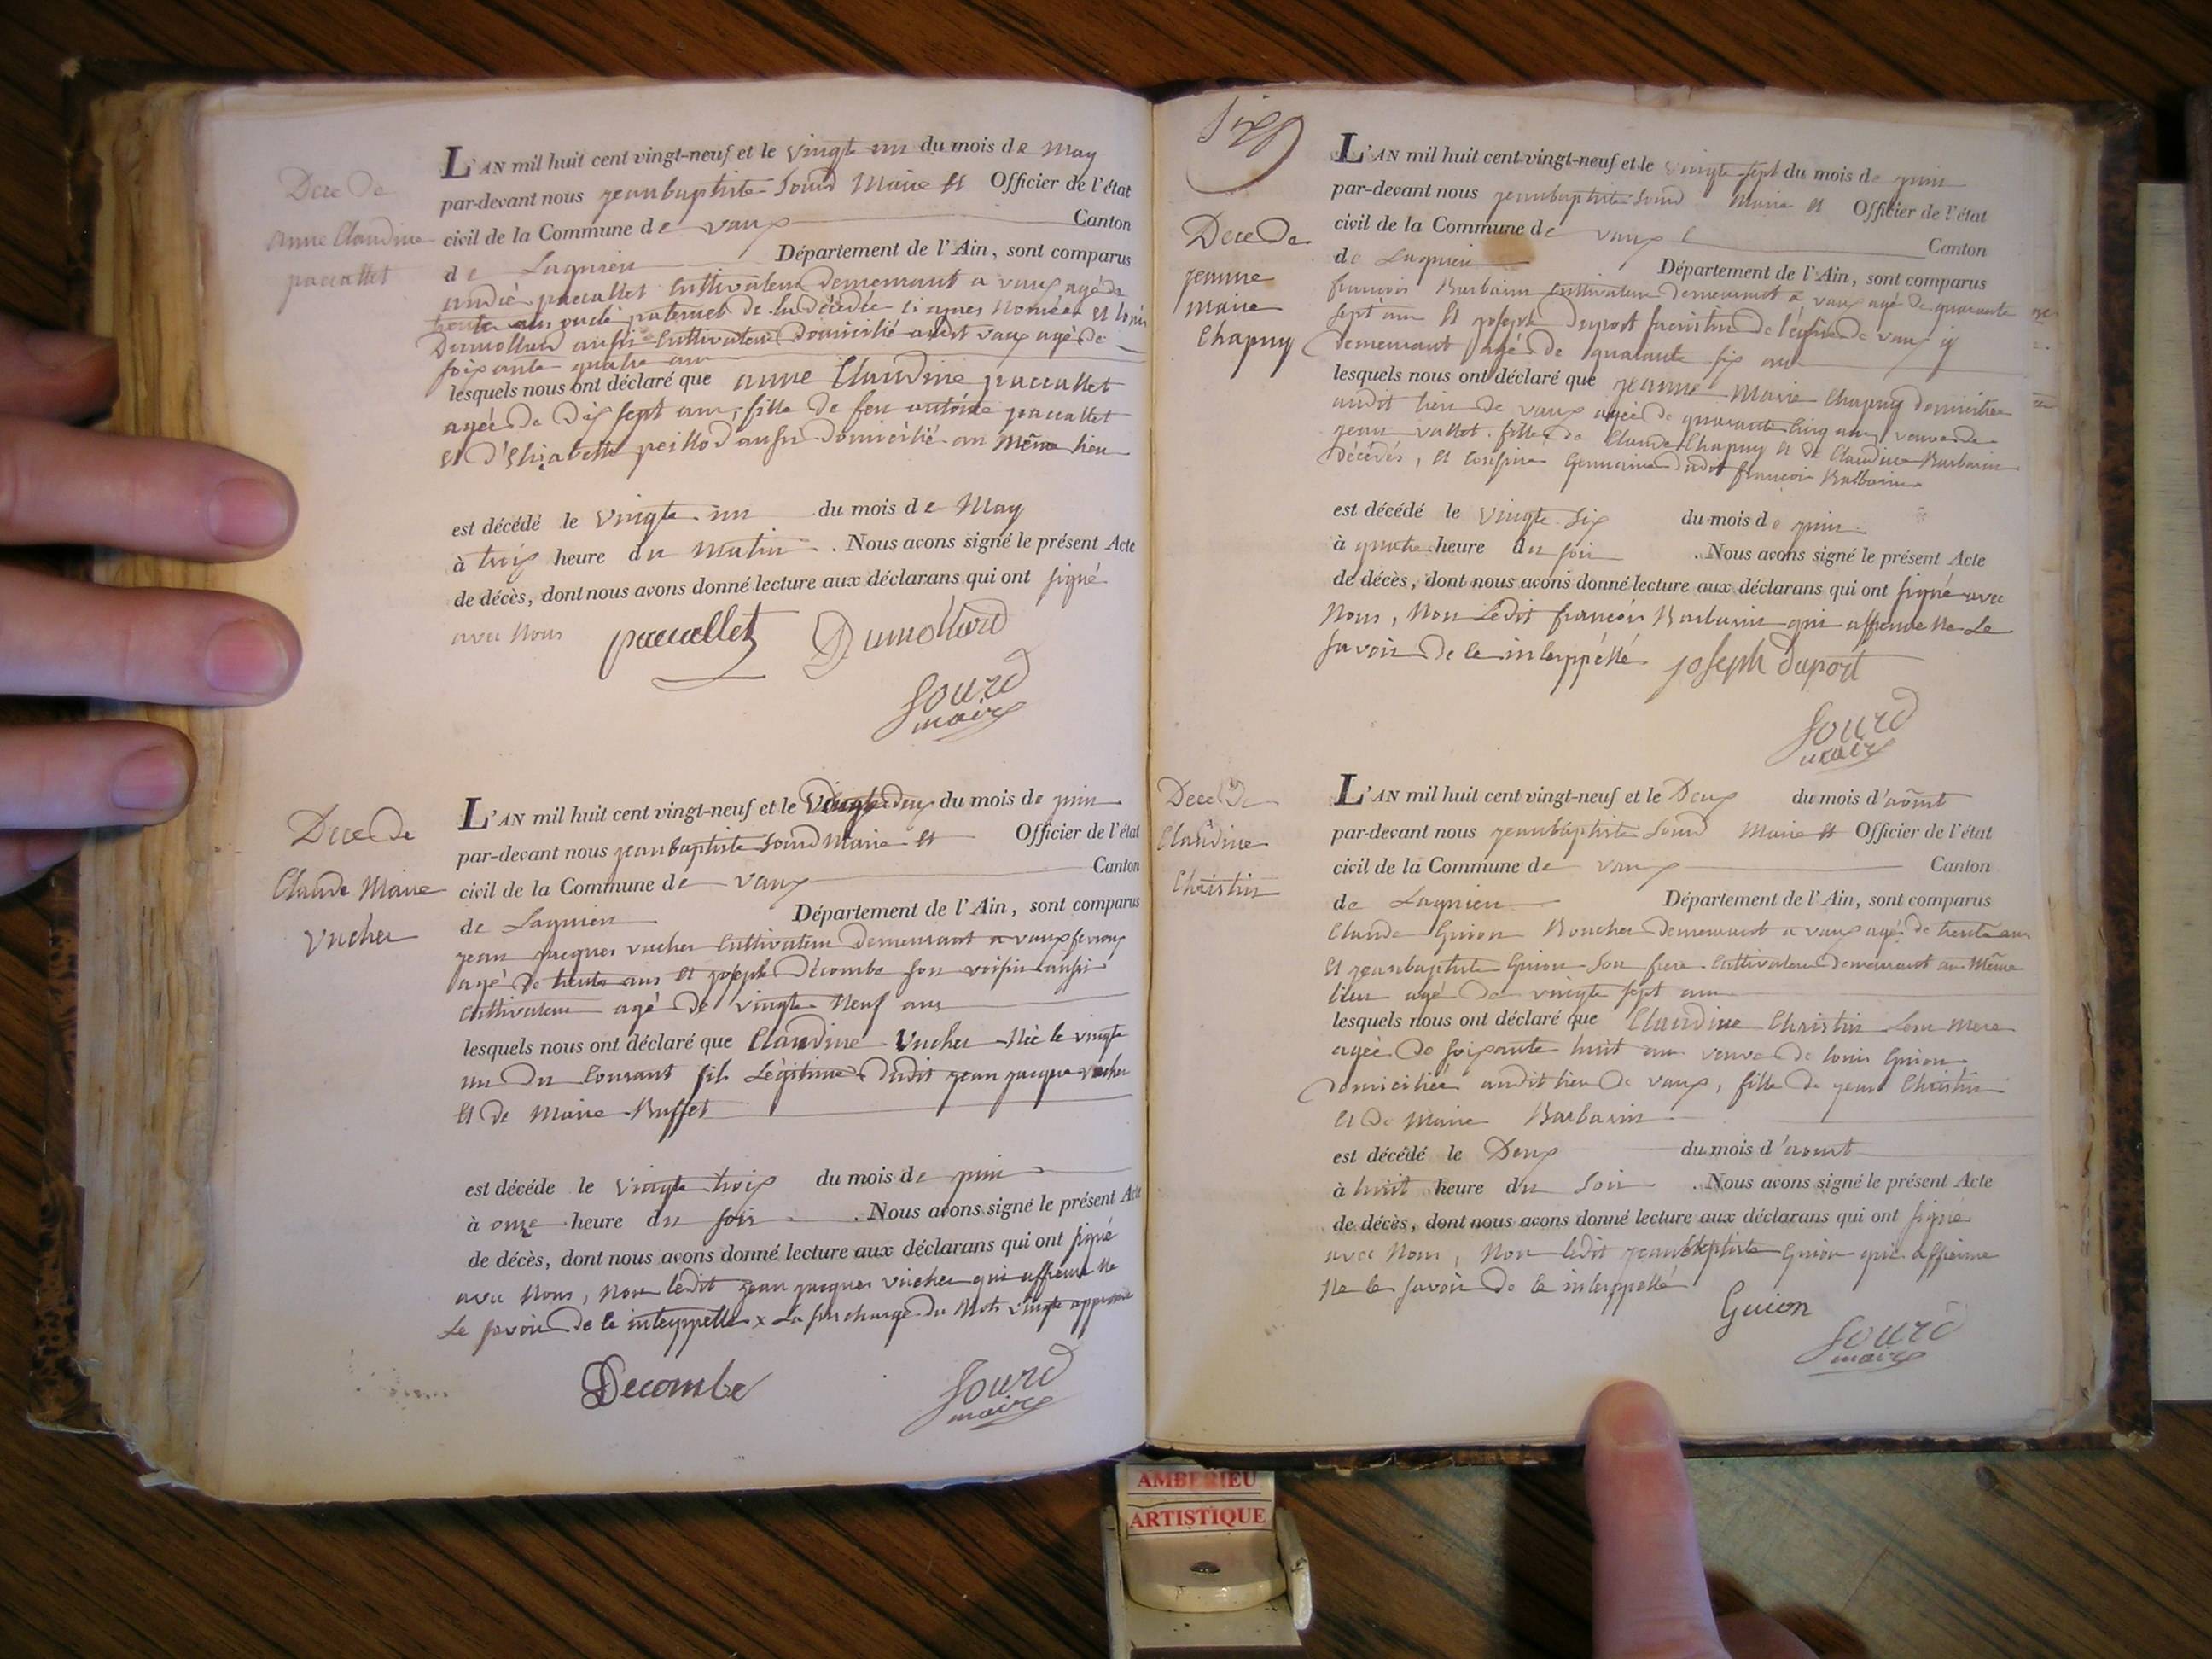 Dece de
anne Claudine
paccallet
L'AN mil huit cent vingt-neuf et le vingt un du mois de May
par-devant nous jeanbaptiste Sourd Maire et Officier de l'état
civil de la Commune de vaux Canton
de Lagnieu Département de l'Ain, sont comparus
andré paccallet Cultivateur demeurant a vaux agé de
trente ans oncle paternel de la décédée ci apres Nomée et louis
Dumollard aussi Cultivateur Domicilié audit vaux agé de
soixante quatre ans
lesquels nous ont déclaré que anne Claudine paccallet
agée de dix sept ans, fille de feu antoine paccallet
et d'Elizabette peillod aussi domicilié au même lieu
est décédé le vingt un du mois de May
à trois heure du matin. Nous avons signé le présent Acte
de décès, dont nous avons donné lecture aux déclarans qui ont signé
avec Nous paccallet Dumollard
Sourd
maire
Dece de
Claude Marie
Vucher
L'AN mil huit cent vingt-neuf et le Vingt deux du mois de juin
par-devant nous jeanbaptiste Sourd Maire et Officier de l'état
civil de la Commune de vaux Canton
de Lagnieu Département de l'Ain, sont comparus
jean jacques vucher Cultivateur Demeurant a vaux
agé de trente ans et joseph Décombe son voisin aussi
Cultivateur agé de vingt Neuf ans
lesquels nous ont déclaré que Claudine Vucher Née le vingt
un du Courant fils Légitime dudit jean jacque vucher
et de Marie Buffet
est décéde le vingt trois du mois de juin
à onze heure du soir. Nous avons signé le présent Acte
de décès, dont nous avons donné lecture aux déclarans qui ont signé
avec Nous, Non ledit jean jacques vucher qui affirme Ne
Le savoir de ce interppellé x La surcharge du Mots vingt
Decombe Sourd
maire
Six
Dece de
jeanne
marie
Chapuy
L'AN mil huit cent vingt-neuf et le vingt sept du mois de juin
par-devant nous jeanbaptiste Sourd Maire et Officier de l'état
civil de la Commune de vaux Canton
de Lagnieu Département de l'Ain, sont comparus
francois Barbarin Cultivateur demeurant a vaux agé de quarante
sept ans et joseph Duport sacristin de l'église de vaux y
demeurant agé de quarante six ans
lesquels nous ont déclaré que jeanne Marie Chapuy domiciliée
audit lieu de vaux agée de quarante Cinq ans, veuve de
jean vallet, fille de Claude Chapuy et de Claudine Barbarin
décédés, et Cousine Germaine dudit francois Barbarin
est décédé le vingt six du mois de juin
à quatre heure du soir. Nous avons signé le présent Acte
de décès, dont nous avons donné lecture aux déclarans qui ont signé avec
Nous, Non Ledit francois Barbarin qui affirme Ne Le
savoir de ce interppéllé joseph duport
Sourd
maire
Dece de
Claudine
Christin
L'AN mil huit cent vingt-neuf et le Deux du mois d'août
par-devant nous jeanbaptiste Sourd Maire et Officier de l'état
civil de la Commune de vaux Canton
de Lagnieu Département de l'Ain, sont comparus
Claude Guion Boucher demeurant a vaux agé de trente ans
et jeanbaptiste Guion son frere Cultivateur demeurant au même
lieu agé de vingt sept ans
lesquels nous ont déclaré que Claudine Christin Leur mere
agée de soixante huit ans veuve de louis Guion
domiciliée audit lieu de vaux, fille de jean Christin
et de Marie Barbarin
est décédé le Deux du mois d'aout
à huit heure du soir. Nous avons signé le présent Acte
de décès, dont nous avons donné lecture aux déclarans qui ont signé
avec Nous, Non ledit jeanbaptiste Guion qui affirme
Ne le savoir de ce interppellé
Guion
Sourd
maire
AMBERIEU
ARTISTIQUE